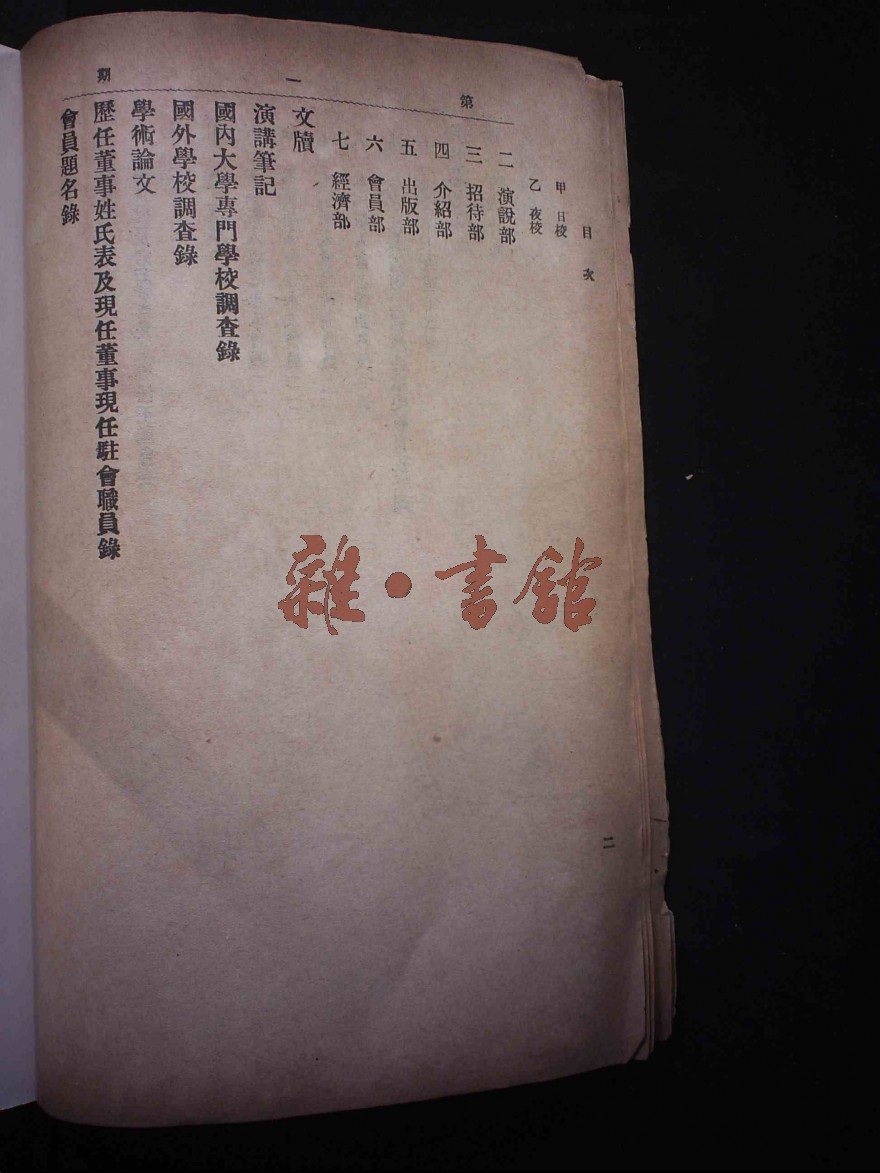 第一期
目次
二
甲 日校
乙 夜校
二 演說部
三 招待部
四 介紹部
五 出版部
六 會員部
七 經濟部
文牘
演講筆記
國內大學專門學校調查錄
國外學校調查錄
學術論文
歷任董事姓氏表及現任董事現任駐會職員錄
會員題名錄
雜·書館